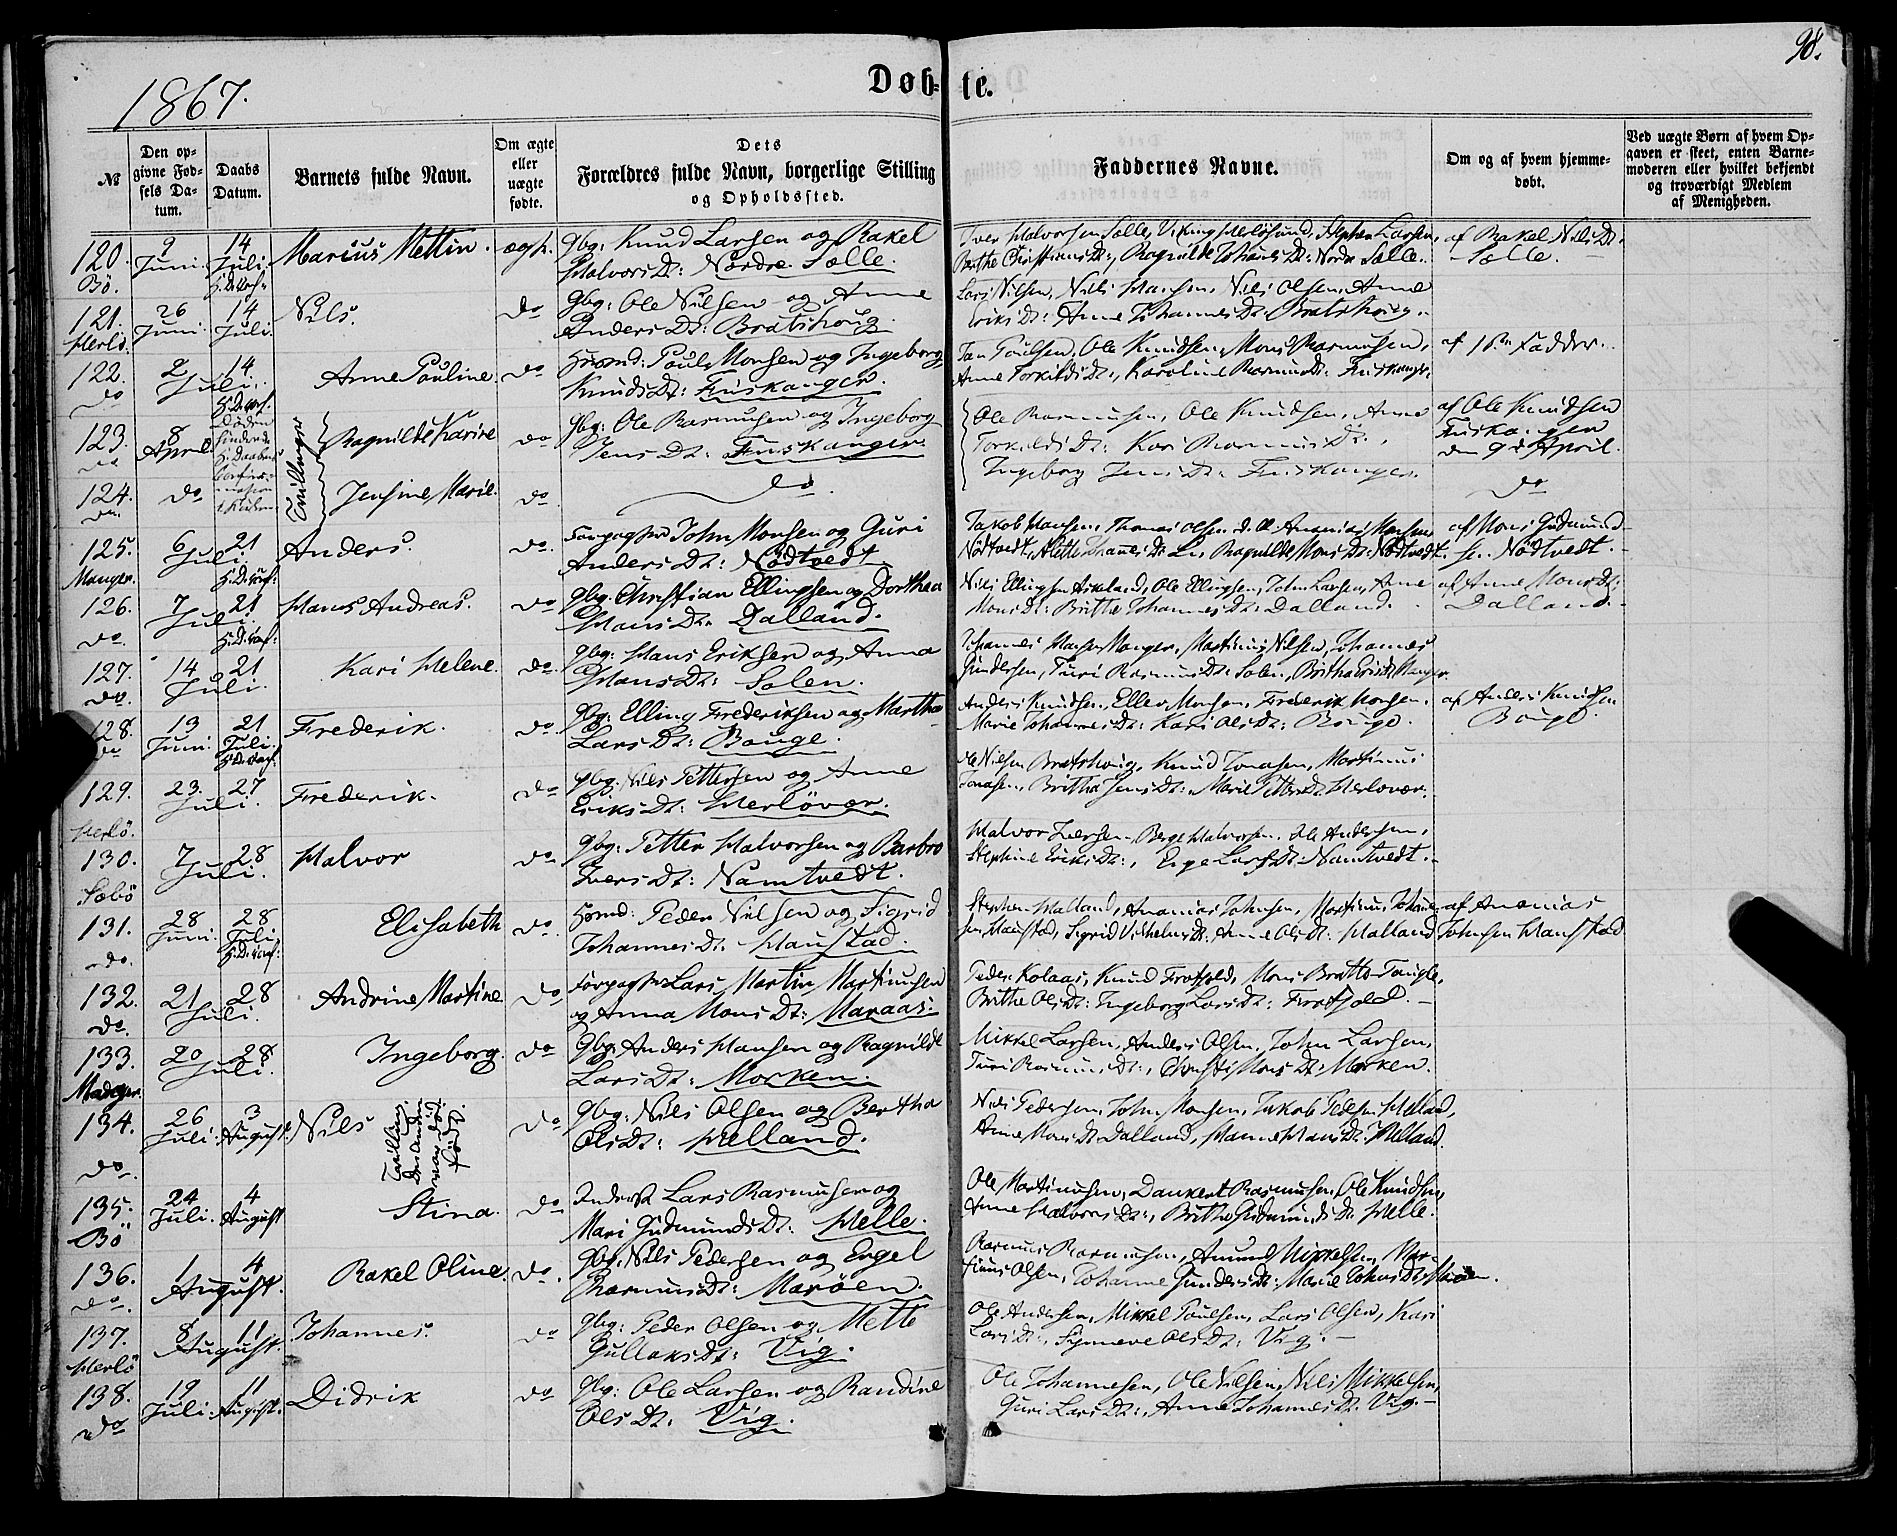 98.
1867.
Døb-te.
№
Den opgivne Fødsels Datum.
Daabs Datum.
Barnets fulde Navn.
Om ægte eller uægte fødte.
Dets Forældres fulde Navn, borgerlige Stilling og Opholdssted.
Faddernes Navne.
Om og af hvem hjemmedøbt.
Ved uægte Børn af hvem Opgaven er skeet, enten Barnemoderen eller hvilket bekjendt og troværdigt Medlem af Menigheden.
120. Bö. 9 Juni. 14 Juli. Marius Mettin. Gbg: Knud Larsen og Rakel
Halvorsdt: Nordre Sælle.
af Rakel Nilsdt. Sælle.
121. Herlö. 26 Juni. 14 Juli. Nils. do Gbg: Ole Nilsen og Anne
Andersdt: Bratshoug.
Lars Nilsen, Nils Hansen, Nils Olsen, Anne
Eriksdt: Anne Johannesdt: Bratshoug.
122. do 2 Juli. 14 Anne Pauline. do Huusmd: Poul Monsen og Ingeborg
Knudsdt: Fuskanger.
Jan Poulsen, Ole Knudsen, Mons Rasmusen,
Anne Torkildsdt:, Karoline Rasmusdt: Fuskanger.
af 1ste Fadder.
123. do 8 April Tvillinger Ragnilde Karine do Gbg: Ole Rasmusen og Ingeborg
Jensdt: Fuskanger.
Ole Rasmusen, Ole Knudsen, Anne
Torkildsdt: Kari Rasmusdt:,
Ingeborg Jensdt: Fuskanger.
af Ole Knudsen
Fuskanger
den 9de April.
124. do. do Jensine Marie. do. do. do
125. Manger. 6 Juli. 21 Anders. do. Forpagter John Monsen og Guri
Andersdt: Nödtvedt.
af Mons Gudmundsen Nödtvedt.
126. do. 7 Juli. 21 Hans Andreas. do Gbg: Christian Ellingsen og Dorthea
Hansdt. Dalland.
Nils Ellingsen Askeland, Ole Ellingsen, John Larsen, Anne
Monsdt: Brithe Johannesdt: Dalland.
af Anne Monsdt: Dalland.
127. do. 14 Juli. 21 Kari Helene. do. Gbg: Hans Eriksen og Anna
Hansdt: Solen.
Johannes Hansen Manger, Martinus Nilsen, Johannes
Gundersen, Turi Rasmusdt: Solen, Britha Eriksdt. Manger.
128. do 13 Juni. 21 Juli. Frederik. do. Gbg: Elling Frederiksen og Martha
Larsdt: Bouge.
Anders Knudsen, Elling Monsen, Frederik Monsen,
Marie Johannesdt: Kari Olsdt: Bouge.
af Anders Knudsen Bouge.
129. Herlö. 23. Juli. 27 Frederik. do Gbg: Nils Pettersen og Anne
Eriksdt: Herlövær.
Ole Nilsen Bratshoug, Knud Jonasen, Martinus
Jonasen, Britha Jensdt: Marie Pettersdt: Herlövær.
130. Sæbö 7 Juli. 28 Halvor do. Gbg: Petter Halvorsen og Barbro
Iversdt: Namtvedt.
Halvor Iversen, Berge Halvorsen, Ole Andersen,
Stephine Eriksdt:, Larsdt: Namtvedt.
131. do. 28 Juni. 28 Juli. Elisabeth do. Huusmd: Peder Nilsen og Sigrid
Johannesdt: Haustad.
Stephen Halland, Ananias Johnsen, Martinus Johannesen, Haustad, Sigrid Vilhelmsdt: Anne Olsdt: Halland
af Ananias Johnsen Haustad
132. do. 21 Juli. 28 Andrine Martine. do Forpagter Lars Martin Martinusen
og Anna Monsdt: Maraas.
Peder Kolaas, Knud, Mons Brattetangle,
Brithe Olsdt: Ingeborg Larsdt:
133. Manger. 20 Juli. 28 Ingeborg. do Gbg: Anders Hansen og Ragnilde
Larsdt: Morken.
Mikkel Larsen, Anders Olsen, John Larsen,
Turi Rasmusdt:, Christi Monsdt: Morken.
134. do. 26 Juli. 3 August. Nils Tvilling. Den anden var död født. do. Gbg: Nils Olsen og Bertha
Olsdt: Helland.
Nils Pedersen, John Monsen, Jakob Pedersen Helland,
Anne Monsdt. Dalland, Hansdt: Helland.
135. Bö 24 Juli. 4 August Stina. do Inderst Lars Rasmusen og
Mari Gudmundsdt: Helle.
Ole Martinusen, Dankert Rasmusen, Ole Knudsen,
Anne Halvorsdt:, Brithe Gudmundsdt: Helle.
136. do. 1 August. 4 Rakel Oline. do. Gbg: Nils Pedersen og Engel
Rasmusdt: Maröen.
Rasmus Rasmusen, Amund Mikkelsen, Martinus Olsen, Johanne Gundersdt: Marie Johnsdt: Maröen.
137. Herlö 8 August. 11 Johannes. do Gbg: Peder Olsen og Mette
Gullaksdt: Vig.
Ole Andersen, Mikkel Poulsen, Lars Olsen, Kari
Larsdt:, Synneve Olsdt: Vig.
138. do 19 Juli. 11 August. Didrik do Gbg: Ole Larsen og Randine
Olsdt: Vig.
Ole Johannesen, Ole Nilsen, Nils Mikkelsen,
Guri Larsdt:, Anne Johannesdt: Vig.